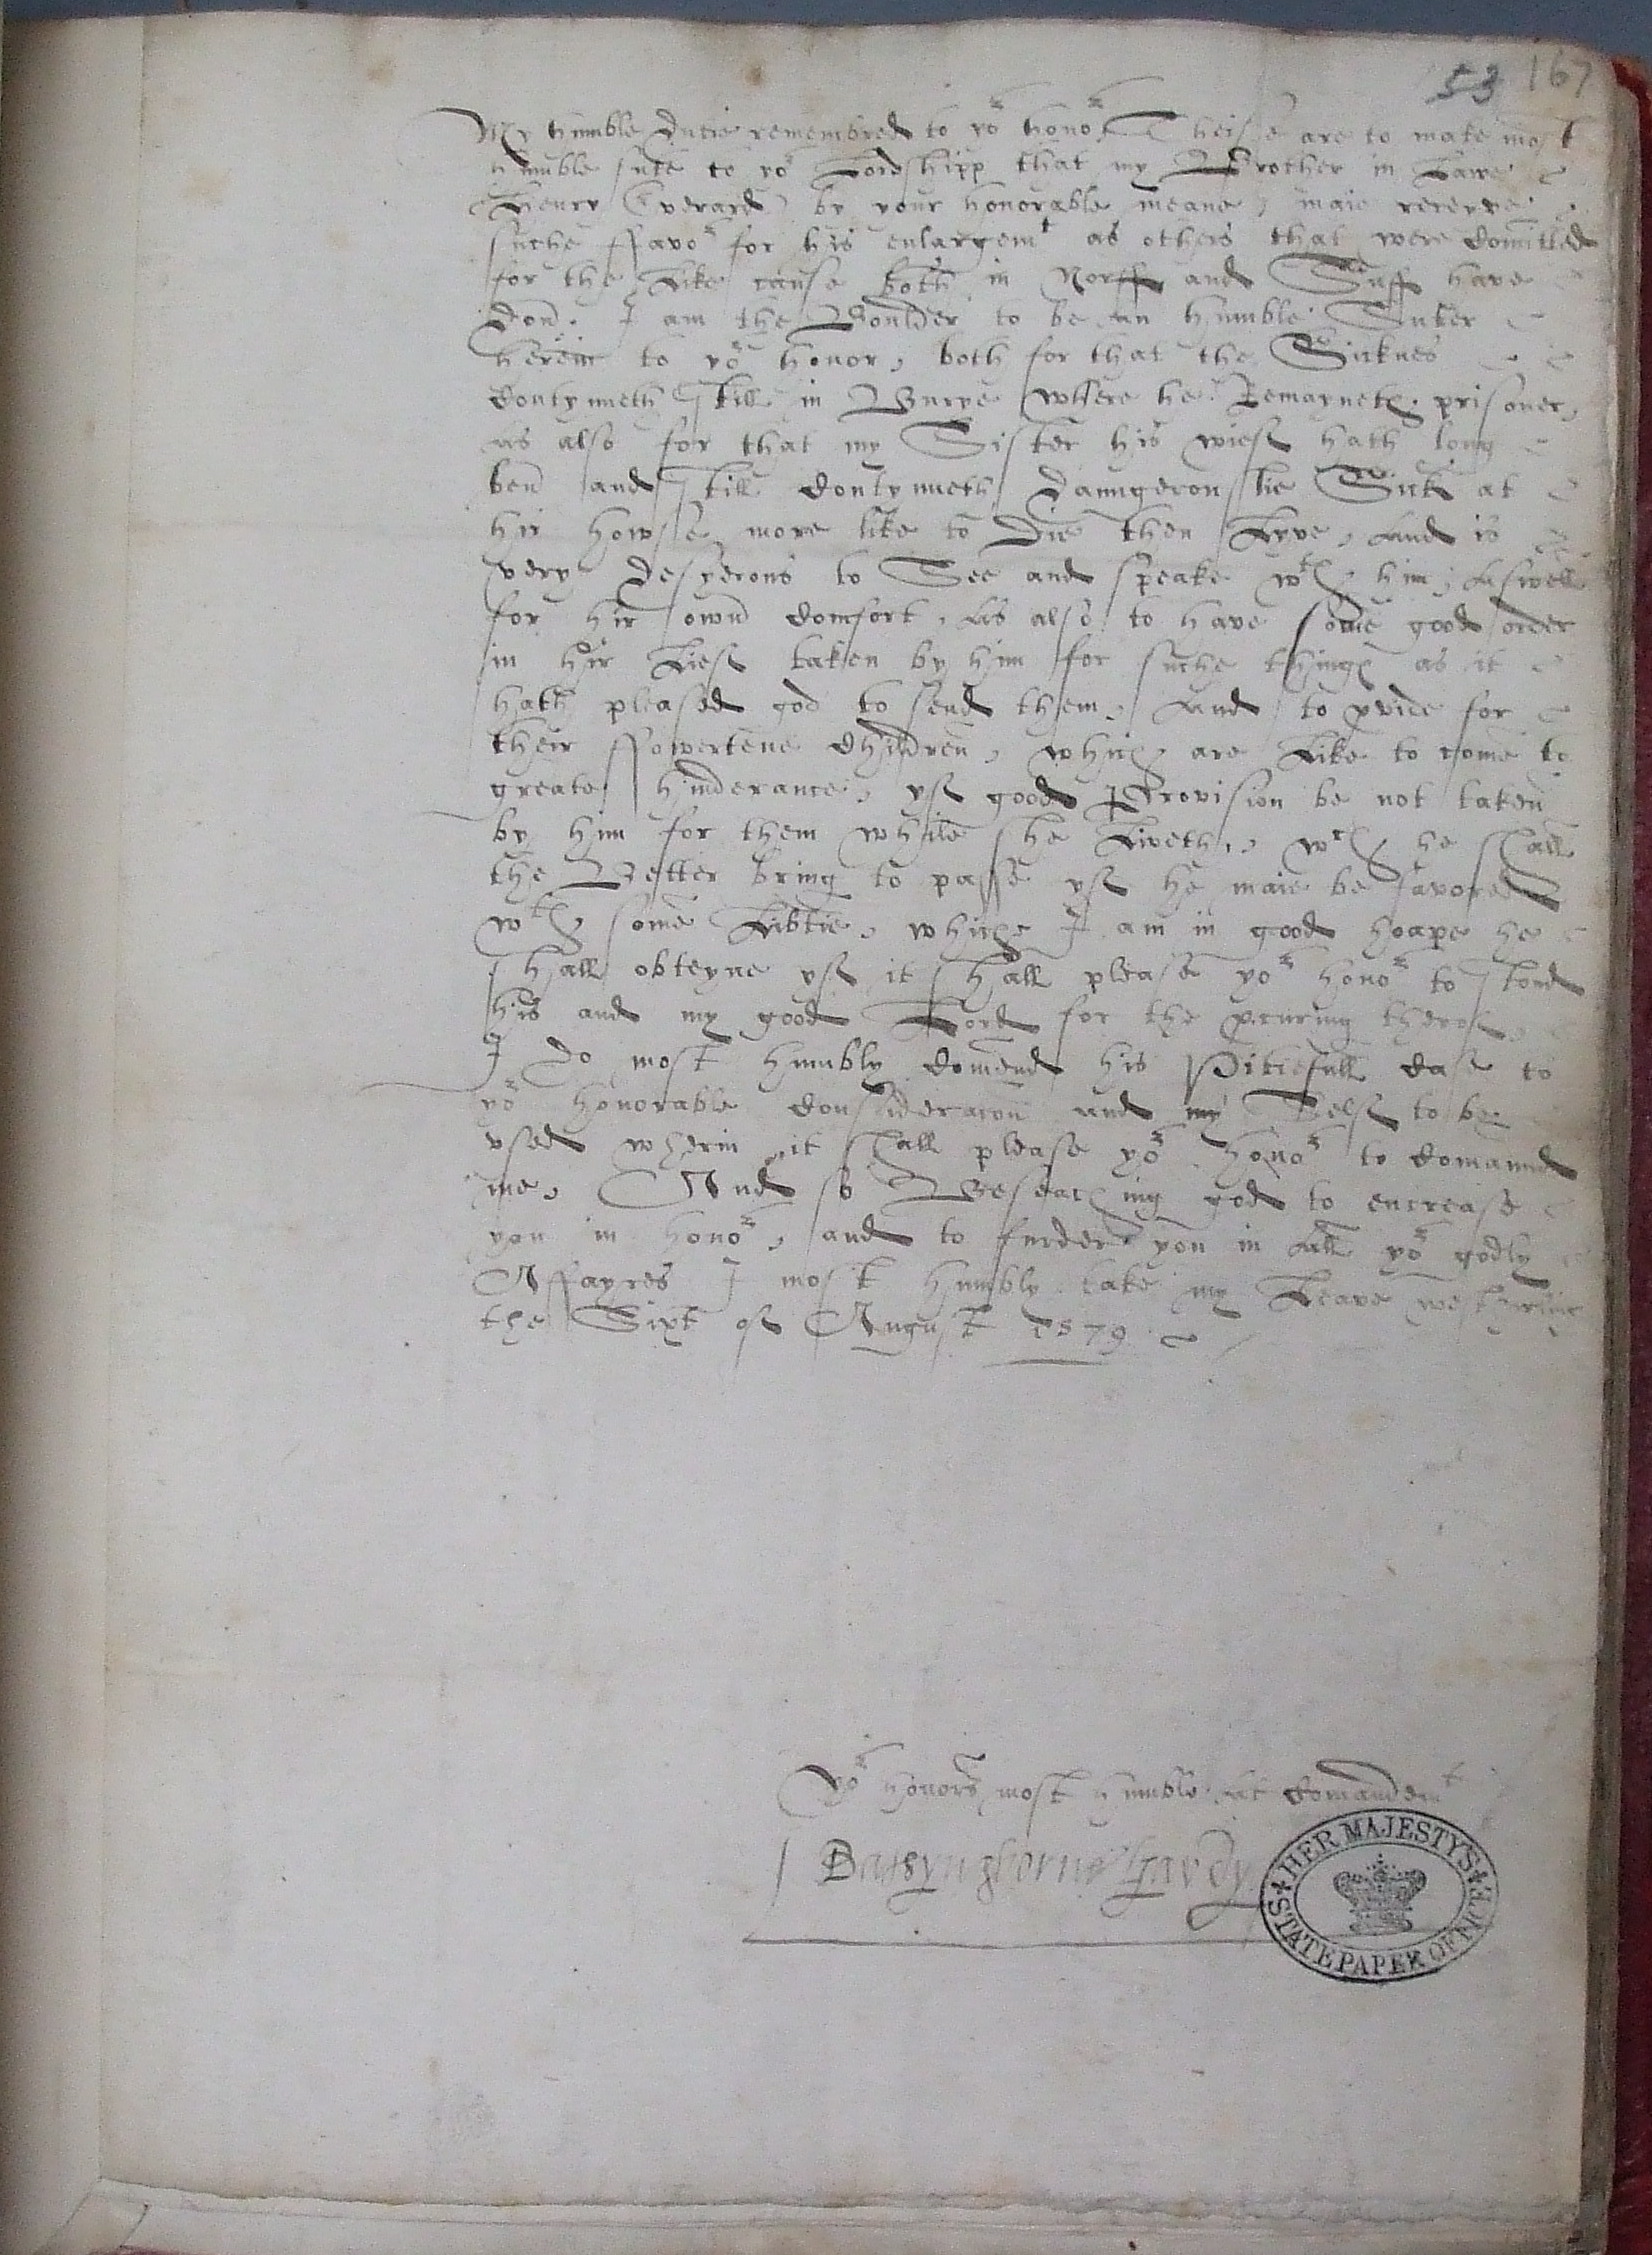 53 167
My humble dutie remembred to yor honor Theise are to make most
humble sute to yor Lordshipp that my Brother in Lawe
Henry Everard by your honorable meane, maie receyve
suche ffavor for his enlargemt as others that were Comitted
for the Like cause both in Norff and Suff have
Don. I am the Boulder to be an humble Suter
herein to yor honor, both for that the Sicknes
Contynueth still in Burye where he Remayneth prisoner,
as also for that my Sister his wief hath long
ben and still Contynueth Daungerouslie Sick at
hir howse more like to Die then Lyve, And is
very desyerous to See and speake wth him, Aswell
for hir own Comfort, As also to have some good order
in hir Lief taken by him for suche things as it
hath pleased god to send them, And to pvide for
their ffowertene Children, which are Like to come to
greate hinderance, yf good Provision be not taken
by him for them while she Liveth, wch he shall
the Better bring to passe yf he maie be favored
wth some Libtie, which I am in good hoape he
shall obteyne yf it shall please yor honor to stond
his and my good Lord for the pcuring therof,
I do most humbly Comend his Pitiefull Case to
yor honorable Consideracon and my Self to be
vsed wherin it shall please yor honor to Comaund
me, And so Beseaching god to encrease
you in honor, and to furder you in All yor godly
Affayres I most humbly take my Leave
the Sixt of August 1579
Yor honors most humble At Comandemt
Bassyngborne Gawdy
HER MAJESTY'S
STATE PAPER OFFICE